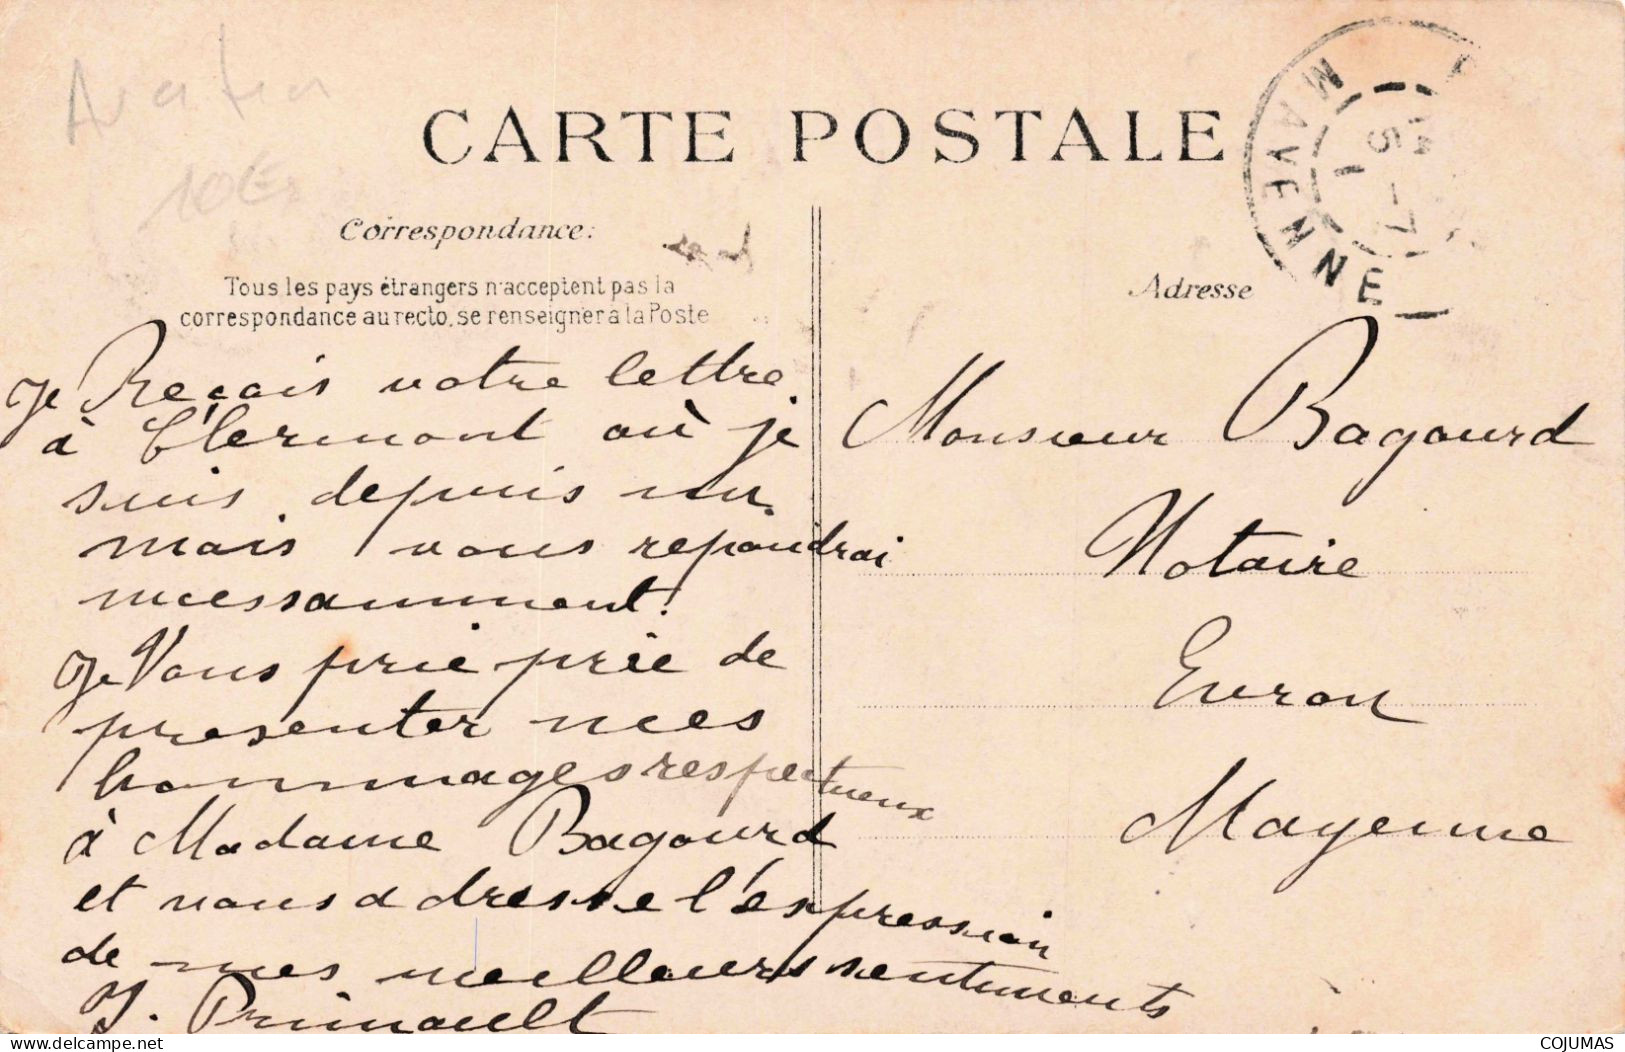 Aviation
10E
CARTE POSTALE
MAYENNE
5 - 7
Correspondance:
Tous les pays étrangers n'acceptent pas la
correspondance au recto, se renseigner à la Poste
Je Reçois votre lettre
à Clermont où je
suis depuis un
mais vous repondrai
incessamment.
Je Vous prie prie de
presenter mes
hommages respectueux
à Madame Bagourd
et vous adresse l'expression
de mes meilleurs sentiments
J. Prinault
Adresse
Monsieur Bagourd
Notaire
Evron
Mayenne
delcampe.net
COJUMAS